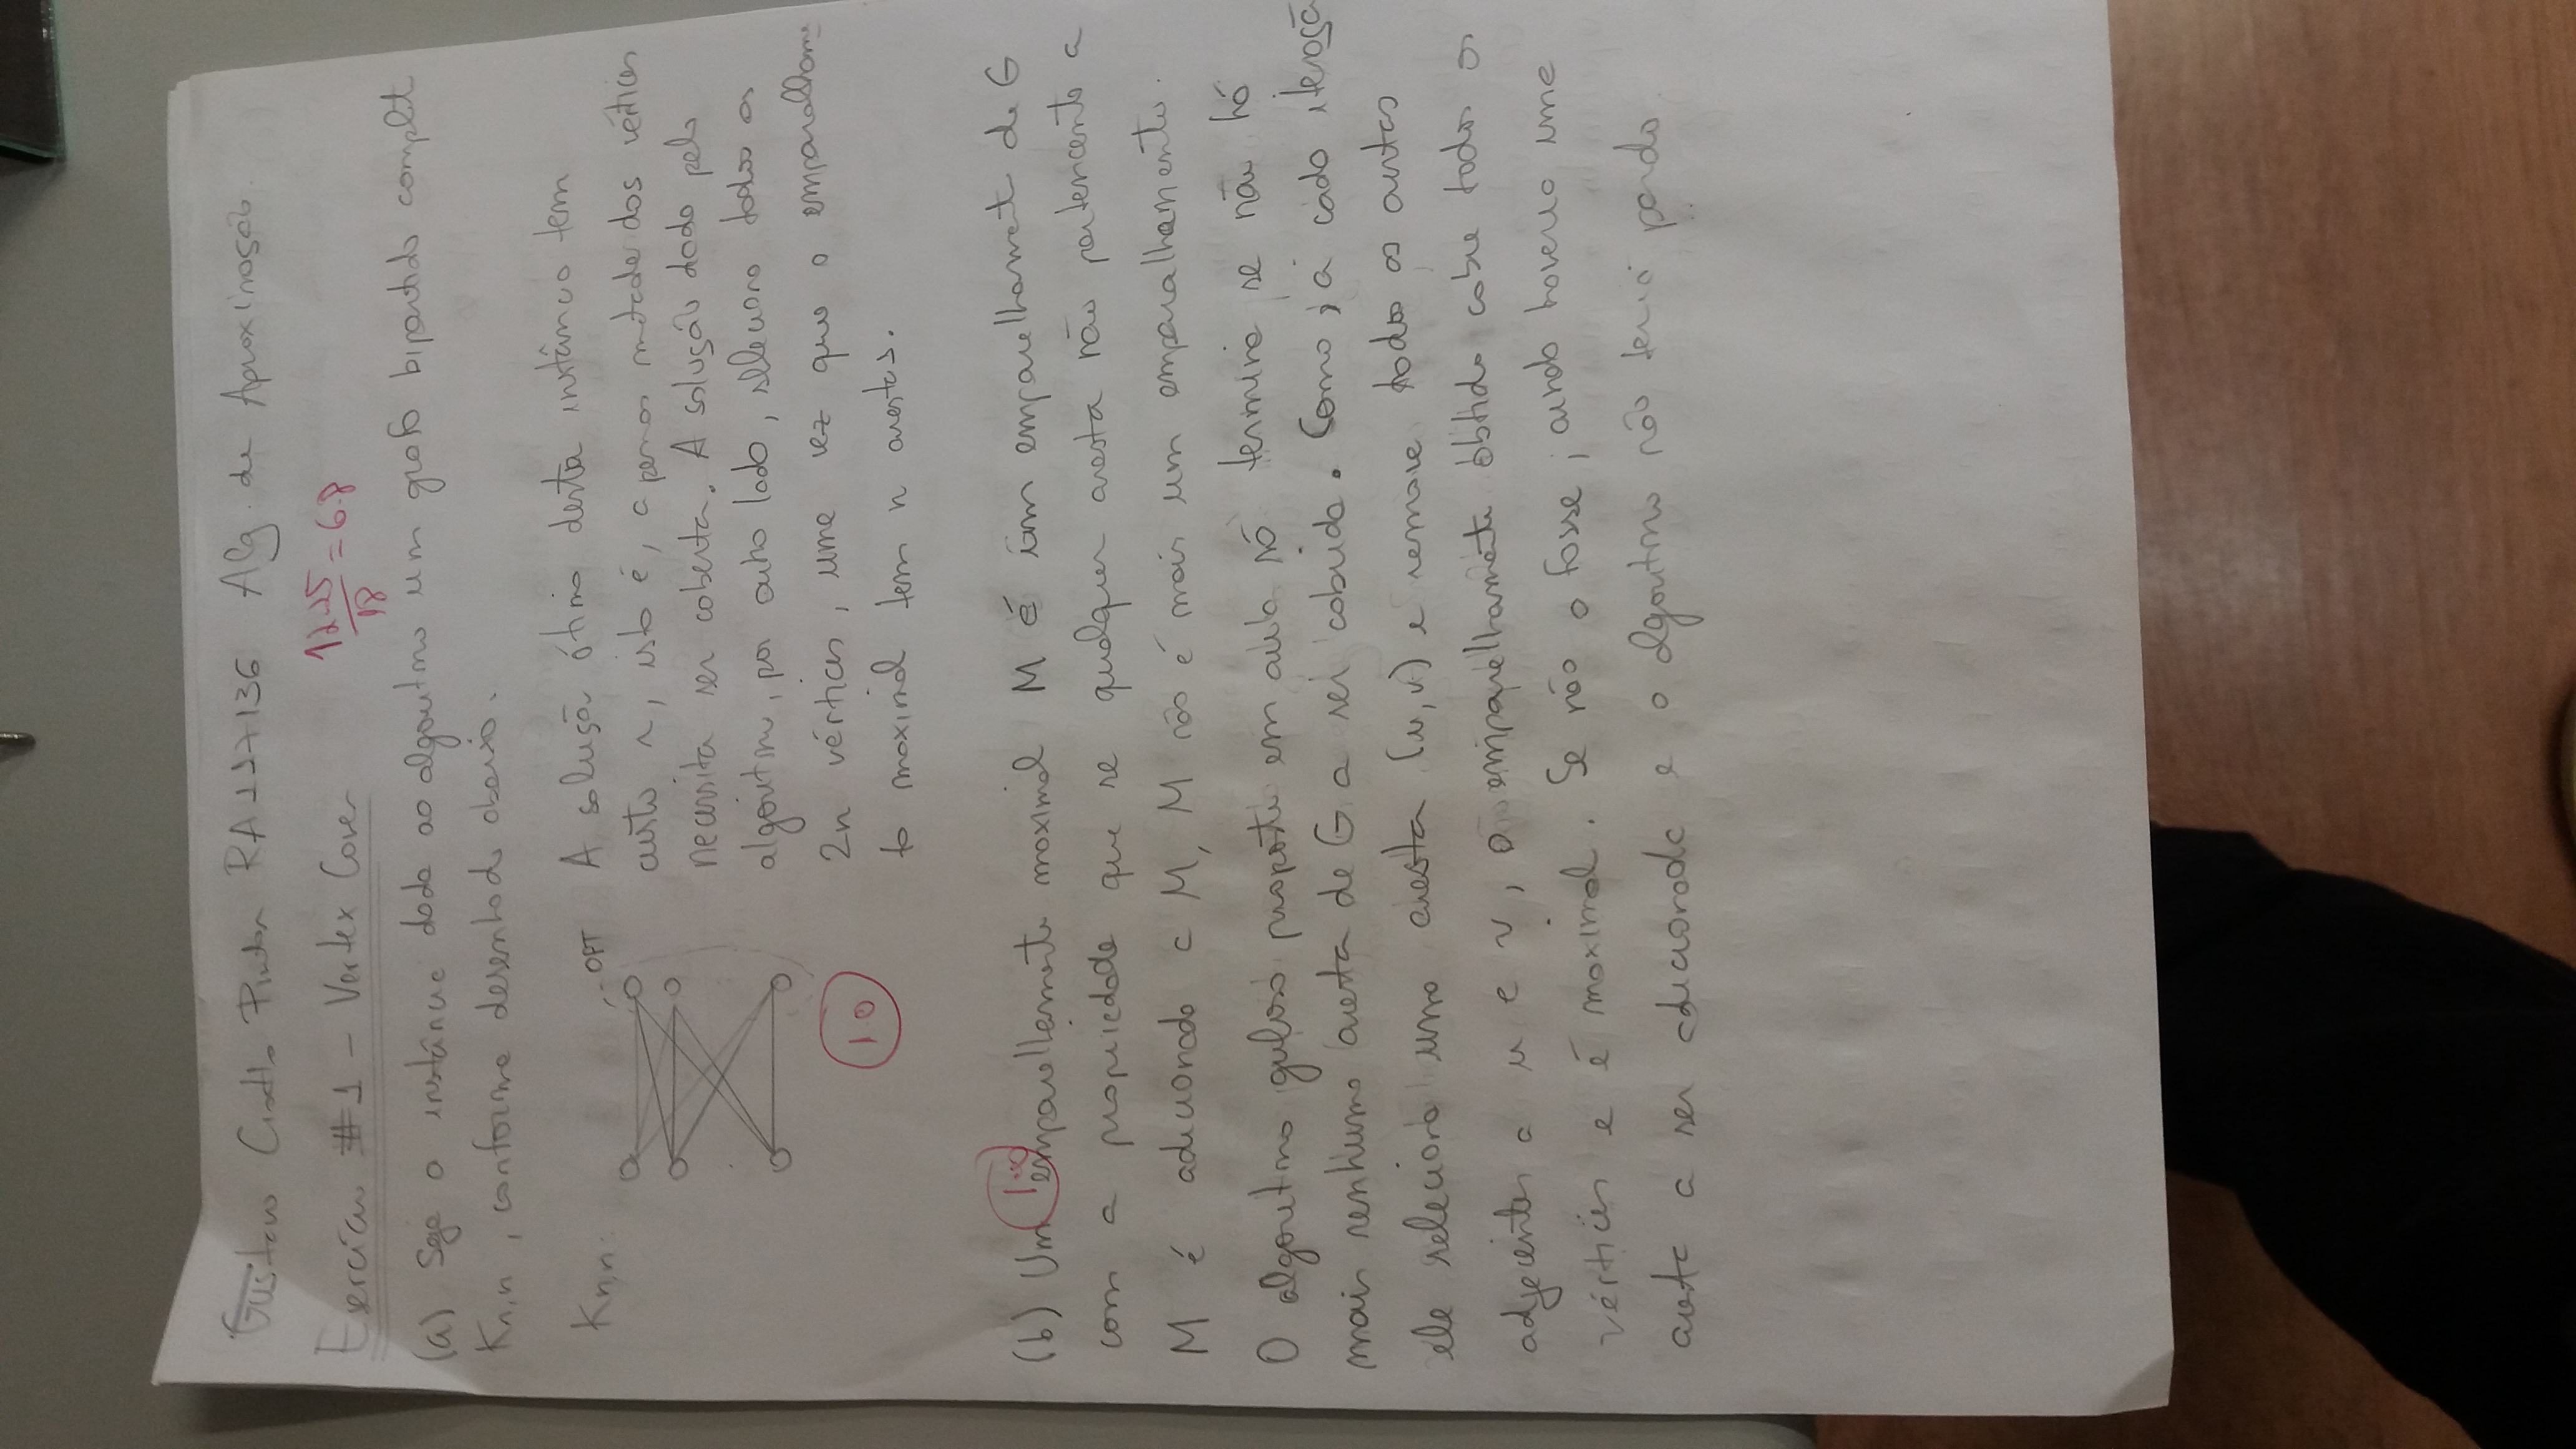 Gustavo Ciotto Pinton RA 117136 Alg. de Aproximação
Exercício #1 - Vertex Cover
12.25
18
= 6.8
(a) Seja a instância dada ao algoritmo um grafo bipartido complet
Kn,n, conforme desenhado abaixo.
Kn,n:
OPT
A solução ótima desta instância tem
custo n, isto é, apenas metade dos vértices
necessita ser coberta. A solução dada pelo
algoritmo, por outro lado, seleciona todos os
2n vértices, uma vez que o emparelhame-
to maximal tem n arestas.
1.0
1.0
(b) Um emparelhamento maximal M é um emparelhament de G
com a propriedade que se qualquer aresta não pertencente a
M é adicionada a M, M não é mais um emparelhamento.
O algoritmo guloso proposto em aula só termina se não há
mais nenhuma aresta de G a ser cobrida. Como, a cada iteraçã
ele seleciona uma aresta (u,v) e remove todas as arestas
adjecentes a u e v, o emparelhamento obtido cobre todos os
vértices e é maximal. Se não o fosse, ainda haveria uma
aresta a ser adicionada e o algoritmo não teria parado